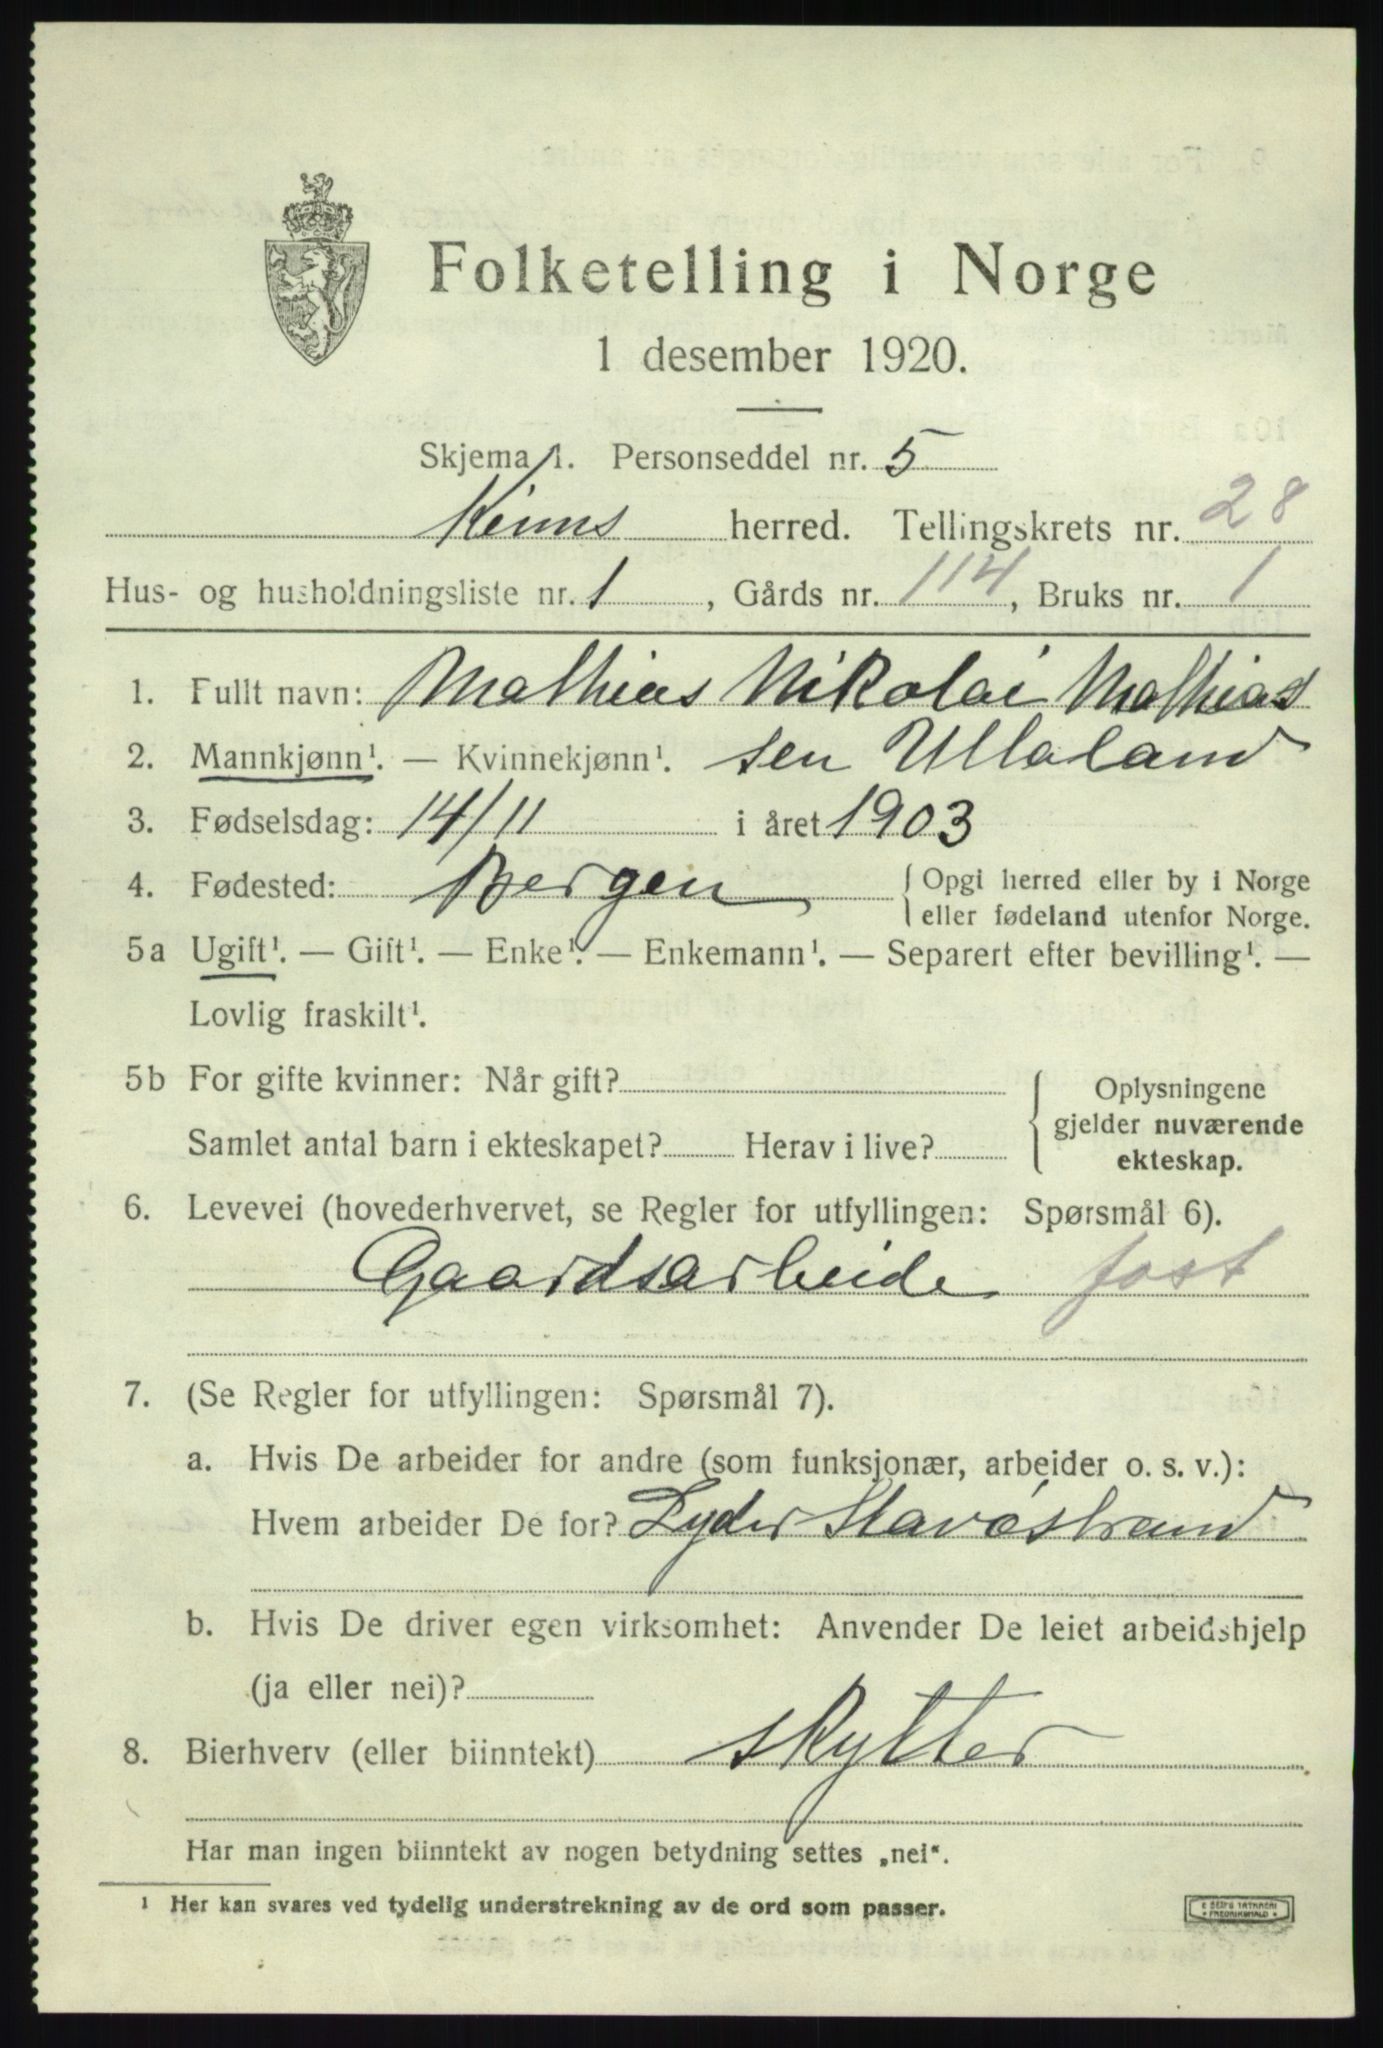 Folketelling i Norge
1 desember 1920.
Skjema 1. Personseddel nr. 5
Kinns herred. Tellingskrets nr. 28
Hus- og husholdningsliste nr. 1, Gårds nr. 114, Bruks nr. 1
1. Fullt navn: Mathias Nikolai Mathias
2. Mannkjønn¹. — Kvinnekjønn¹. sen Ullaland
3. Fødselsdag: 14/11 i året 1903
4. Fødested: Bergen { Opgi herred eller by i Norge
eller fødeland utenfor Norge.
5a Ugift¹. — Gift¹. — Enke¹. — Enkemann¹. — Separert efter bevilling¹. —
Lovlig fraskilt¹.
5b For gifte kvinner: Når gift? { Oplysningene
gjelder nuværende
Samlet antal barn i ekteskapet? Herav i live?
ekteskap.
6. Levevei (hovederhvervet, se Regler for utfyllingen: Spørsmål 6).
Gaardsarbeide fost
7. (Se Regler for utfyllingen: Spørsmål 7).
a. Hvis De arbeider for andre (som funksjonær, arbeider o. s. v.):
Hvem arbeider De for? Lyder Stavøstrand
b. Hvis De driver egen virksomhet: Anvender De leiet arbeidshjelp
(ja eller nei)?
8. Bierhverv (eller biinntekt) skytter
Har man ingen biinntekt av nogen betydning settes „nei“.
¹ Her kan svares ved tydelig understrekning av de ord som passer.